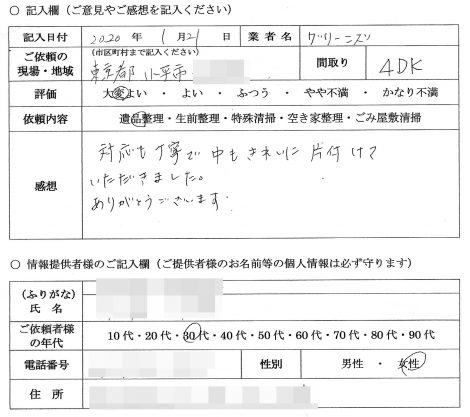 ○ 記入欄(ご意見やご感想を記入ください)
記入日付 2020 年 1 月 21 日 業者名 グリーンズ
ご依頼の現場・地域 (市区町村まで記入ください) 東京都 小平市 間取り 4DK
評価 大変よい ・ よい ・ ふつう ・ やや不満 ・ かなり不満
依頼内容 遺品整理・生前整理・特殊清掃・空き家整理・ごみ屋敷清掃
感想
対応も丁寧で中もきれいに片付けて
いただきました。
ありがとうございます。
○ 情報提供者様のご記入欄(ご提供者様のお名前等の個人情報は必ず守ります)
(ふりがな)
氏 名
ご依頼者様の年代 10代・20代・30代・40代・50代・60代・70代・80代・90代
電話番号 性別 男性 ・ 女性
住 所